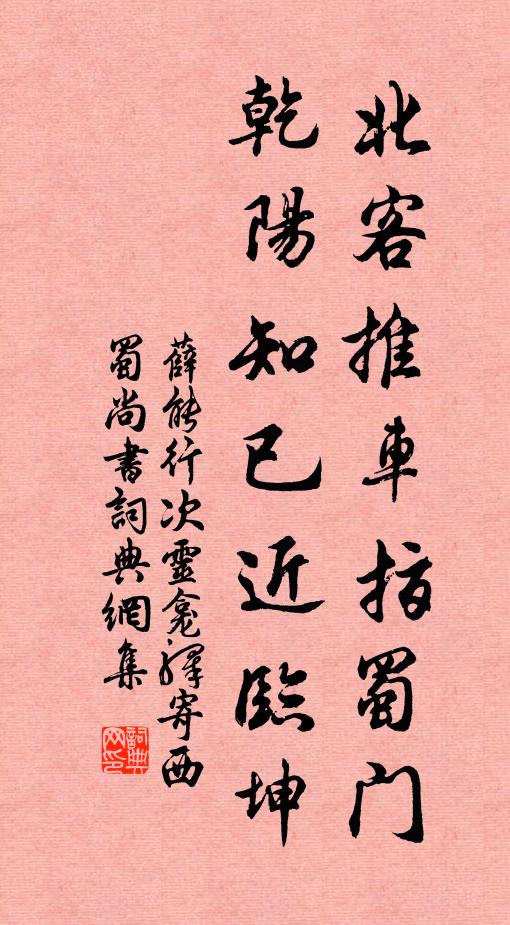 北客推車指蜀門
乾陽知已近臨坤
薛能行次靈龕驛寄西
蜀尚書詞典網集
詞典網印